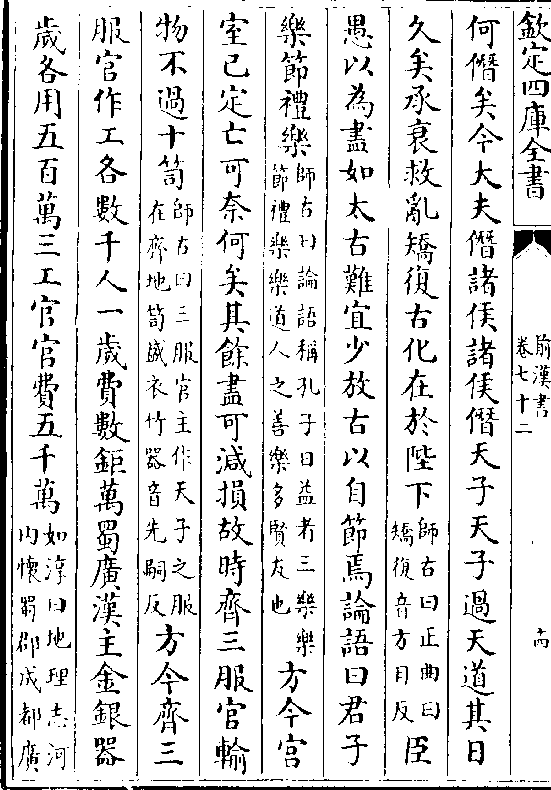 欽定四庫全書
前漢書
卷七十二
十四
何僭矣今大夫僭諸侯諸侯僭天子天子過天道其日
久矣承衰救亂矯復古化在於陛下師古曰正曲曰矯復音方目反臣
愚以為盡如太古難宜少放古以自節焉論語曰君子
樂節禮樂師古曰論語稱孔子曰益者三樂樂節禮樂樂道人之善樂多賢友也方今宮
室已定亡可奈何矣其餘盡可減損故時齊三服官輸
物不過十笥師古曰三服官主作天子之服在齊地笥盛衣竹器音先嗣反方今齊三
服官作工各數千人一歲費數鉅萬蜀廣漢主金銀器
歲各用五百萬三工官官費五千萬如淳曰地理志河内懷蜀郡成都廣